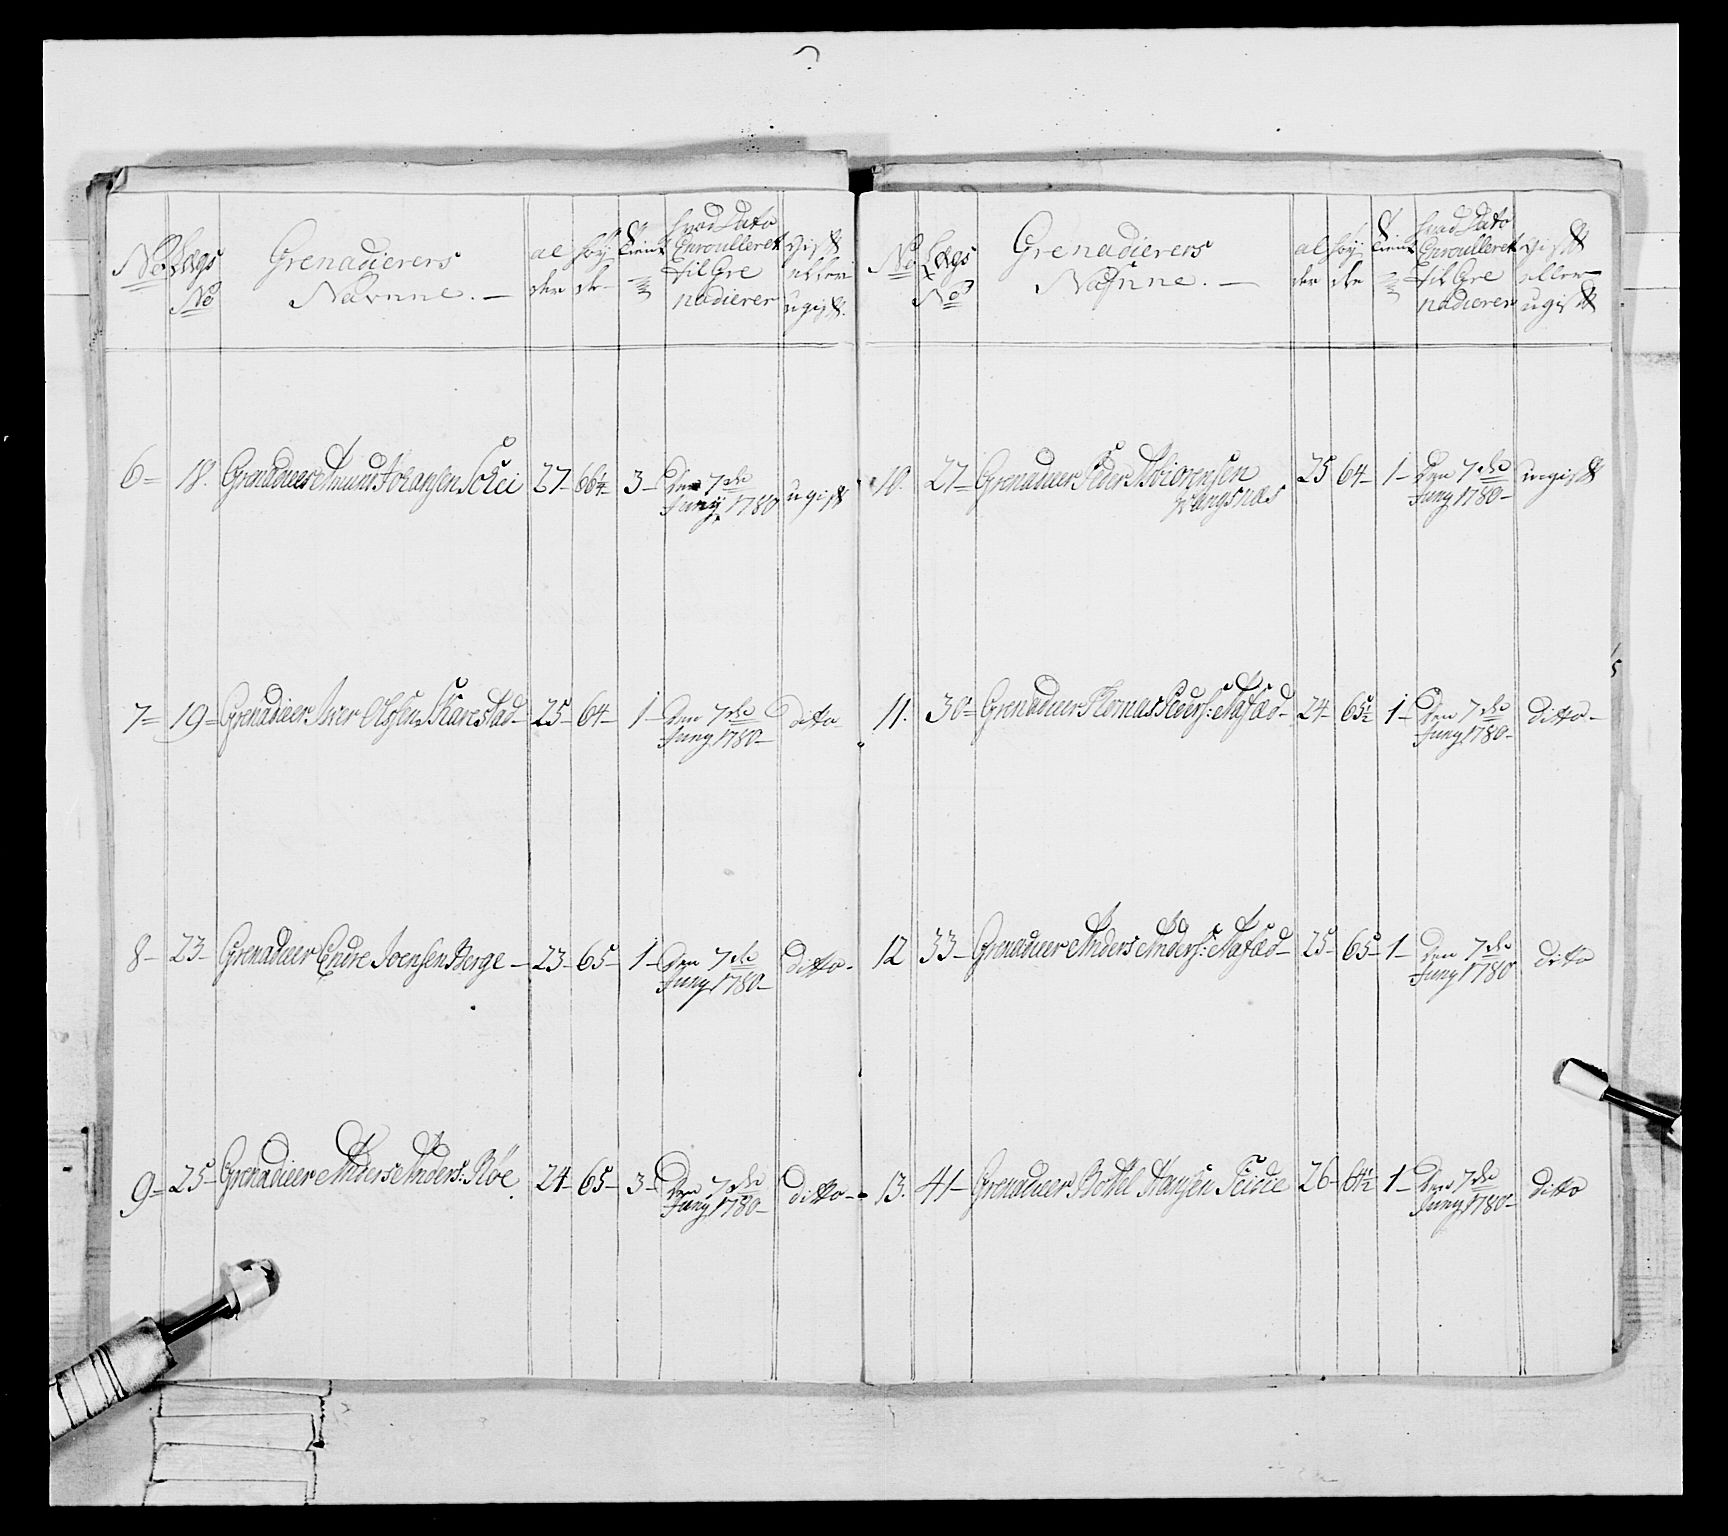 No Lægs No Grenadierers Navnne. — al der høy de Tieniste hvad Dato Enroulleret til Gre nadierer gift eller ugift.
6 = 18. Grenadeer Amund Johansen 27 - 66¼ 3 - Den 7de Juny 1780 ugift
7 = 19 = Grenadeer Iver Olsen Karestad 25 - 64 - 1 - Den 7de Juny 1780 - ditto
8 - 23 - Grenadeer Endre Joensen Berge - 23 - 65 - 1 - Den 7de Juny 1780 - ditto -
9 = 25 - Grenadeer Anders Anders: Röe 24 - 65 - 3 - Den 7de Juny 1780 - ditto -
No Lægs No Grenadierers Nafnne. — al der høy de hvad Dato Enroulleret til Gre nadierer gift eller ugift
10. 27 = Grenadeer Peder Siorensen
Wangsnæs 25 64 - 1 - Den 7de Juny 1780 - ugift
11. 30 = Grenadeer Peders: 24 - 65½ 1 - Den 7de Juny 1780 - ditto -
12 33 - Grenadeer Anders Anders: 25 - 65 - 1 - Den 7de Juny 1780 ditto
13. 41 - Grenadeer Botel Hansen Feidie 26 - 64½ 1 - Den 7de Juny 1780 - ditto